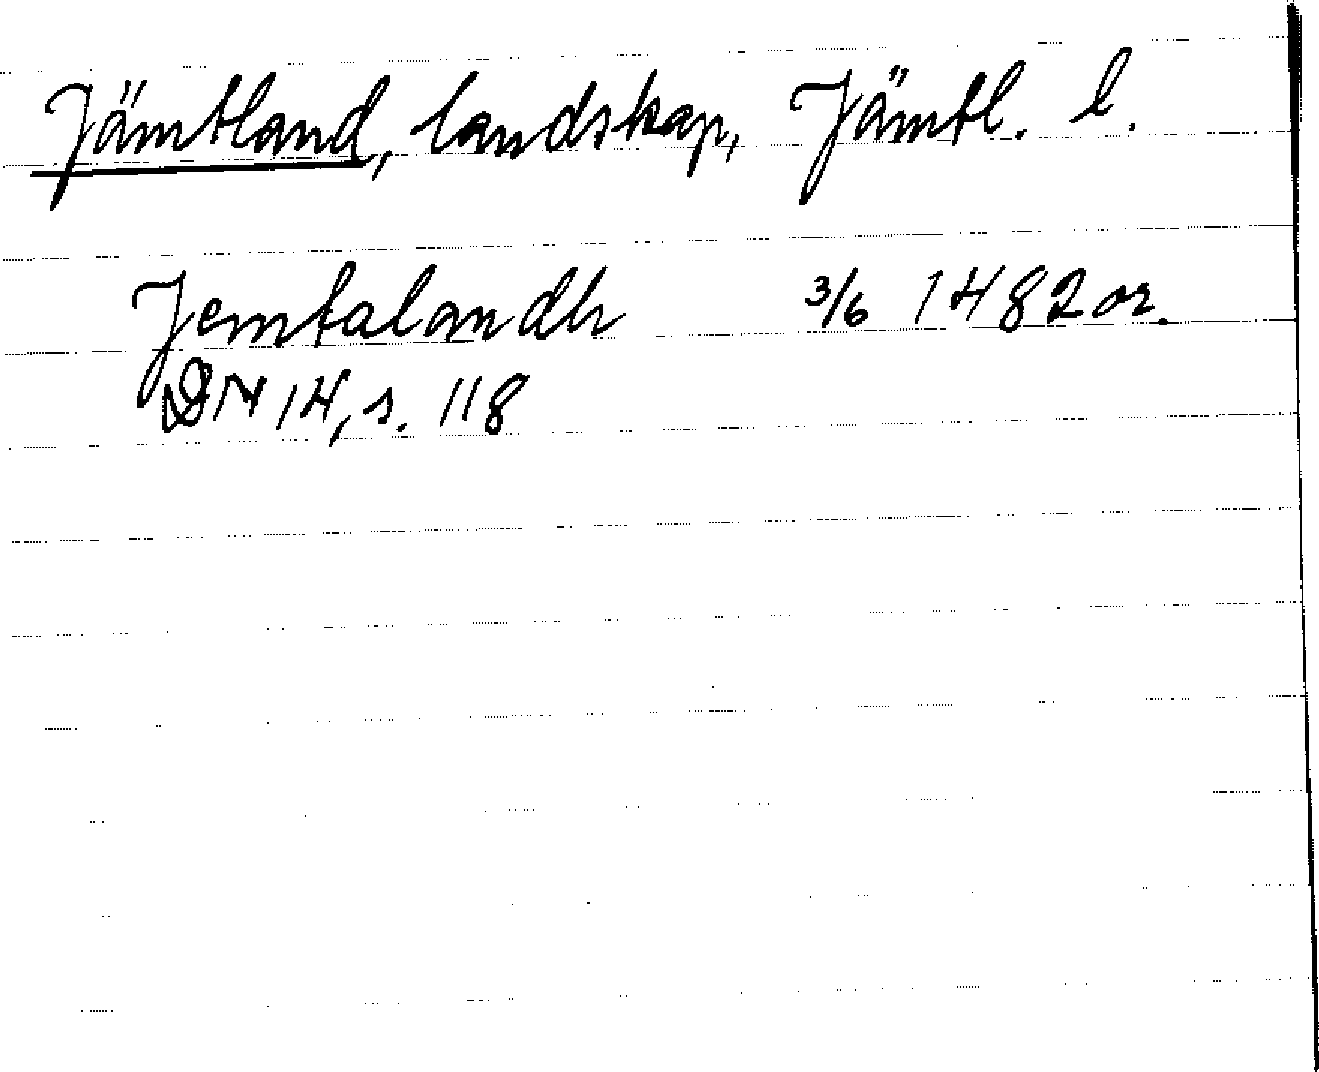 Jämtland, landskap, Jämtl. l.
Jemtalandh 3/6 1482 or.
DN 14, s. 118